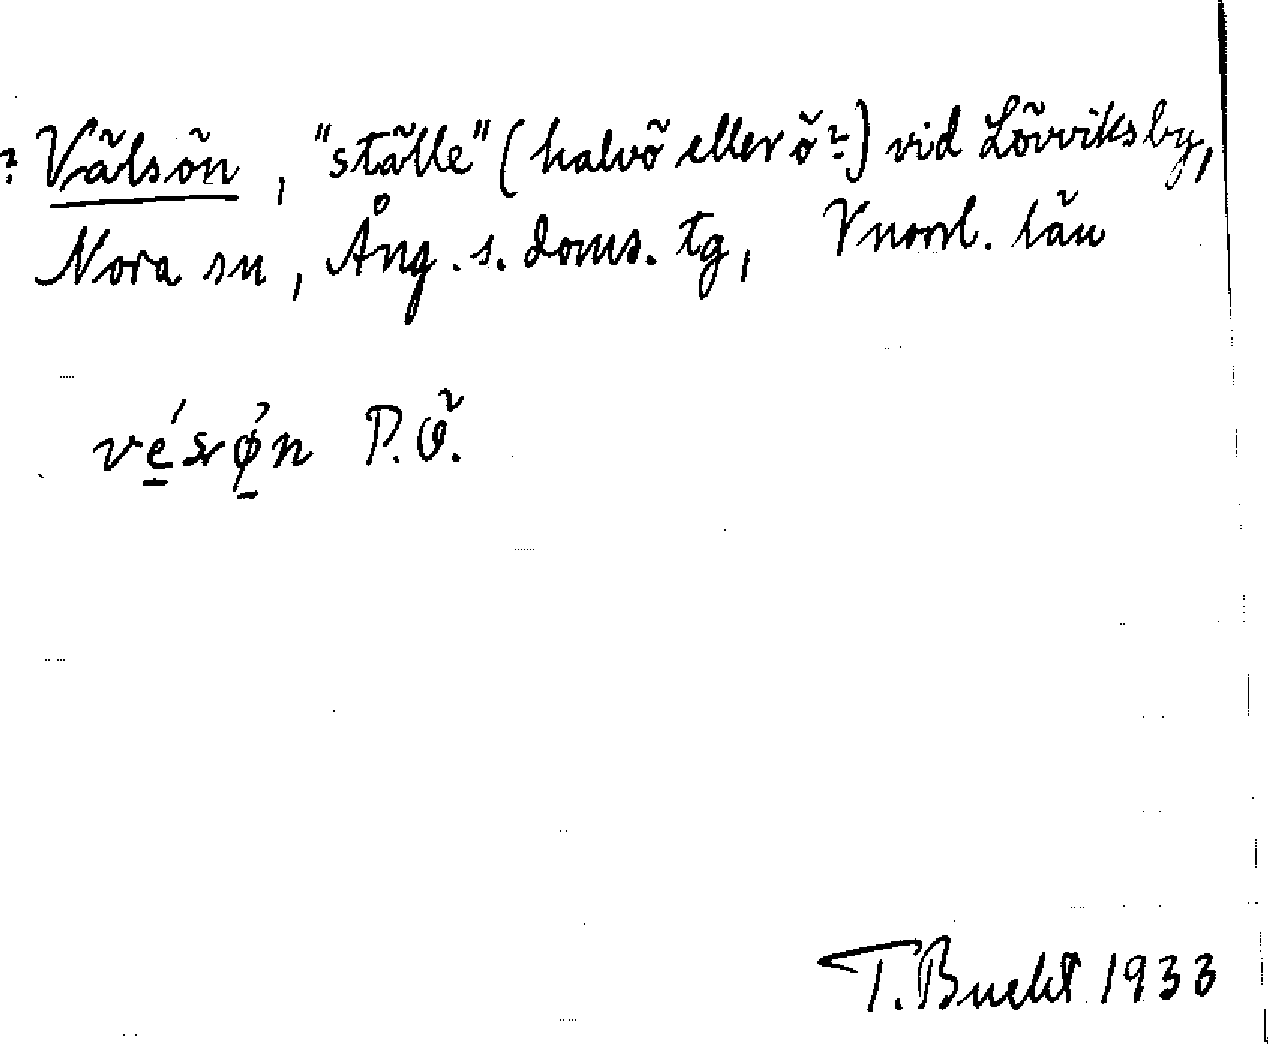 ? Välsön, "ställe" (halvö eller ö?) vid Lövviksby,
Nora sn, Ång. s. doms. tg, Vnorrl. län
P.Ö.
T. Bucht 1933